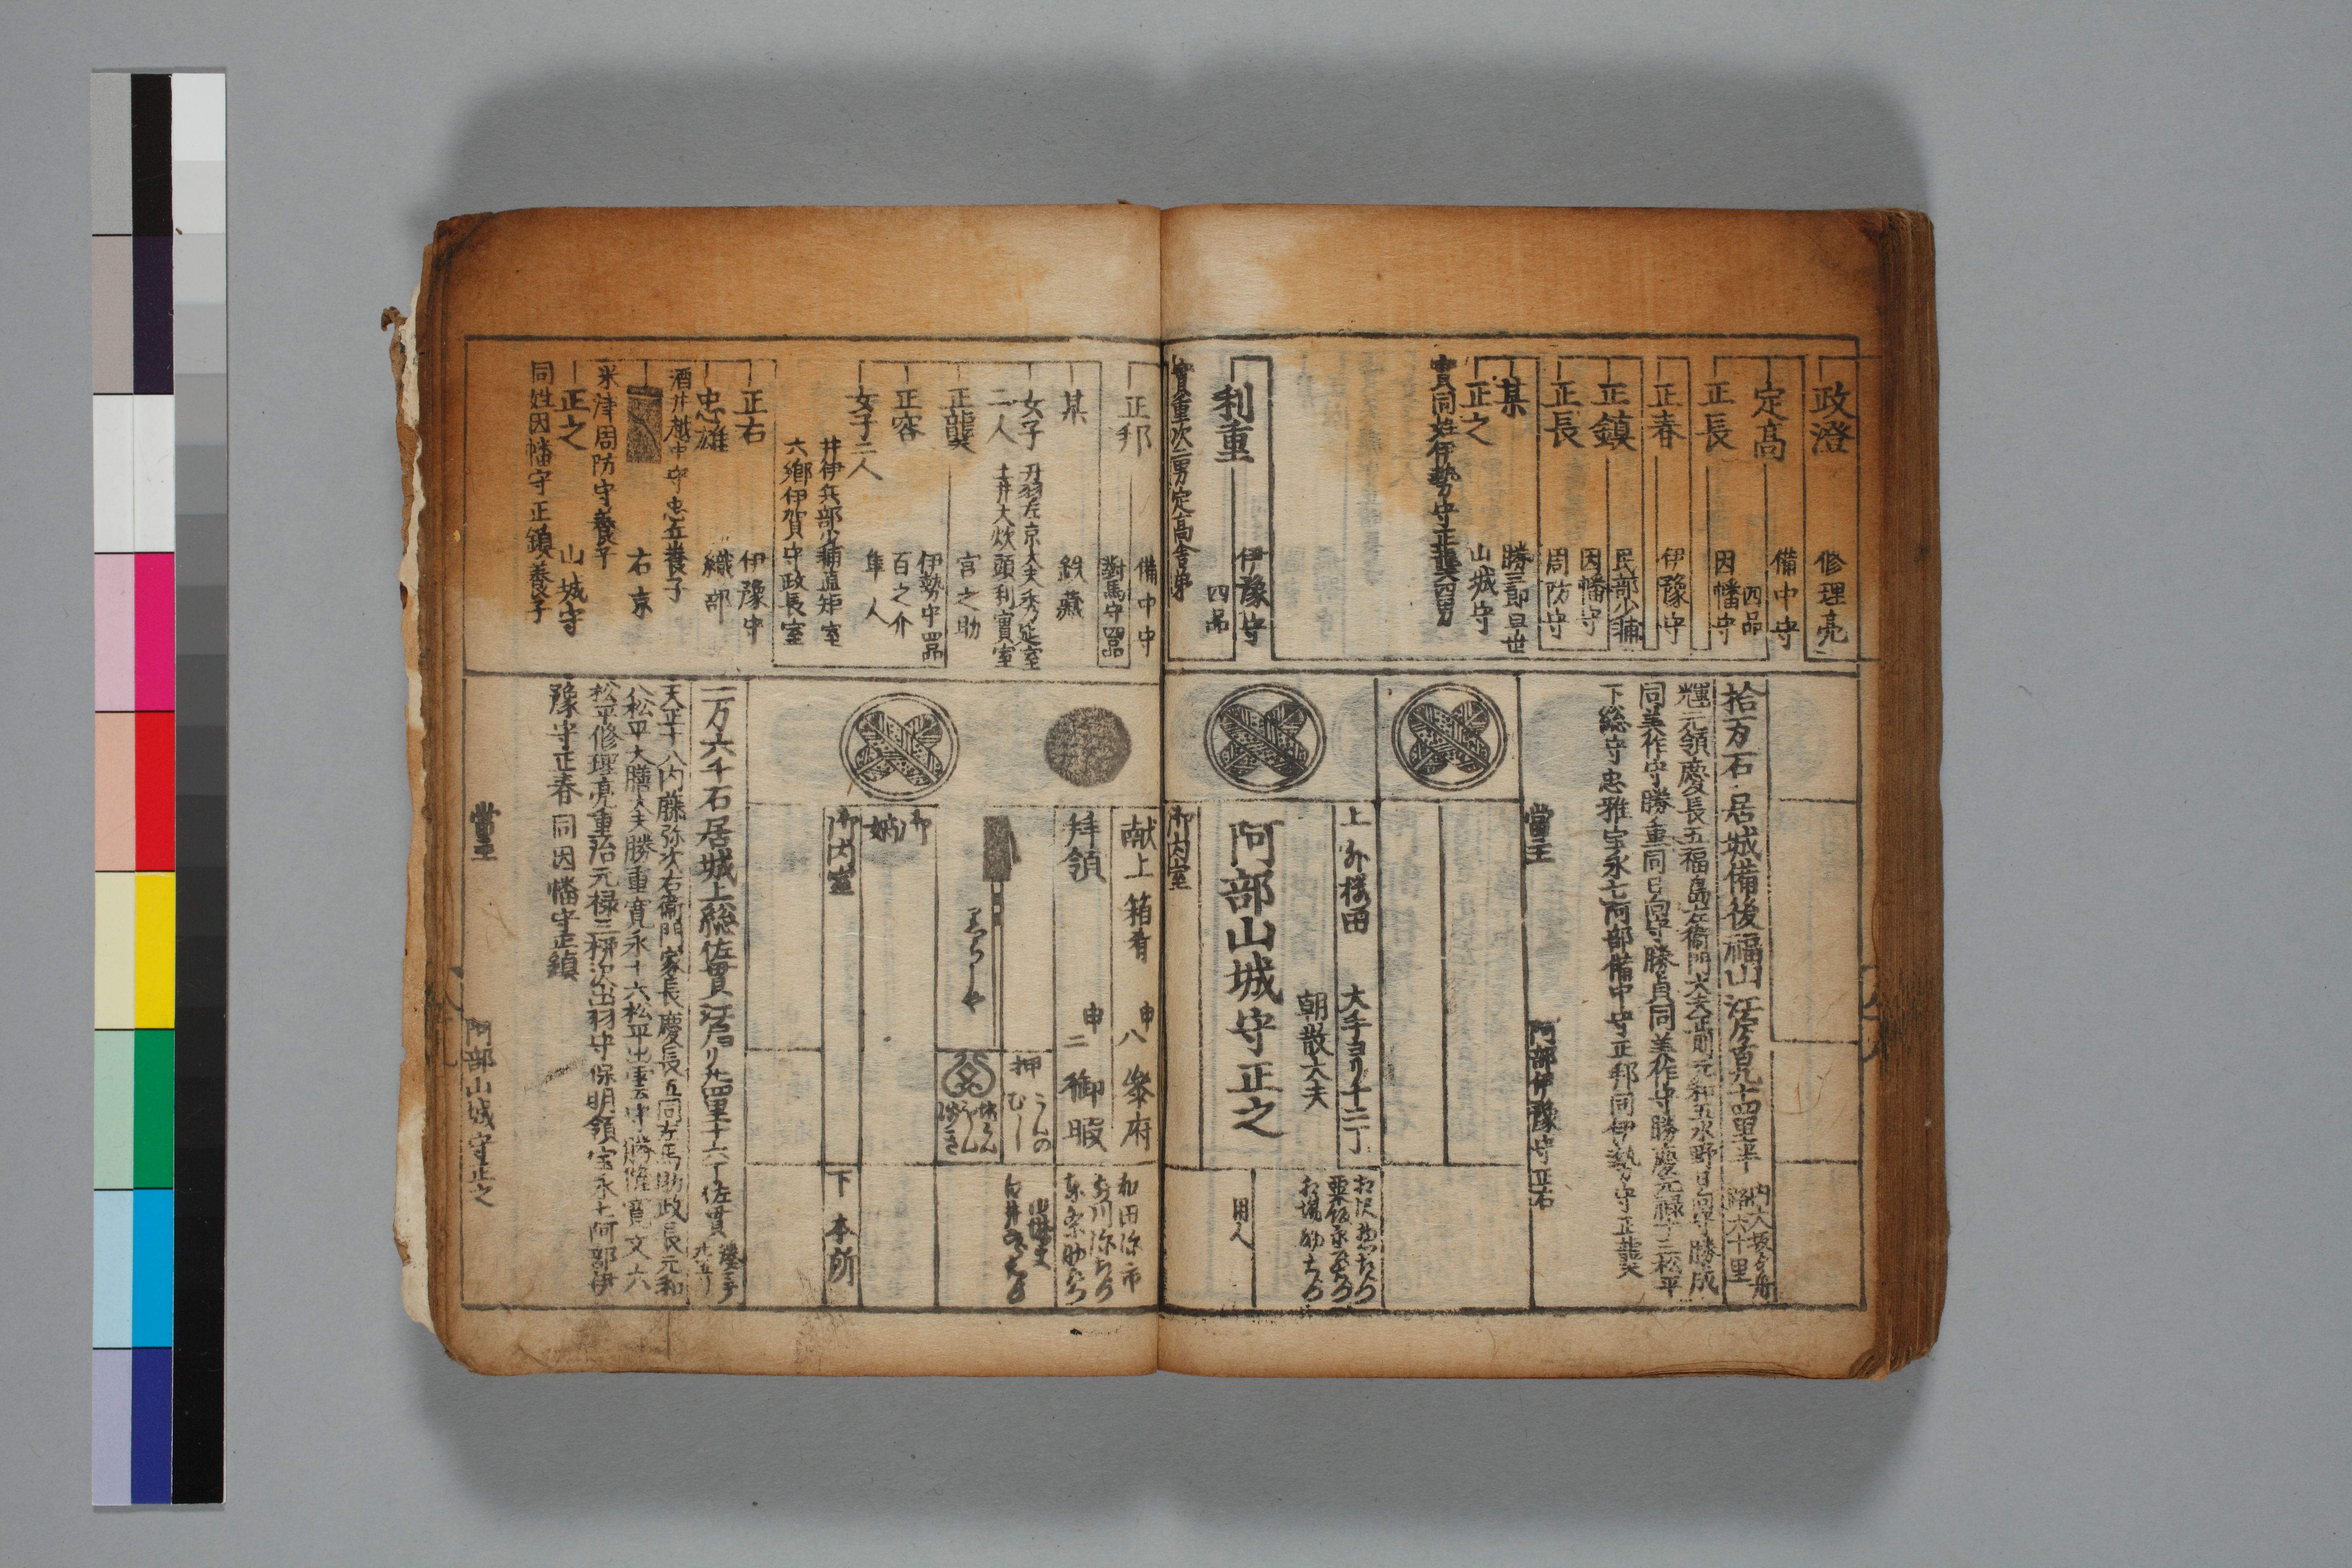 政澄 修理亮
定高 備中守 四品
正長 因幡守
正春 伊豫守
正鎮 民部少輔 因幡守
正長 周防守
某 勝三郎早世
正之 山城守
實同姓伊勢守正龔四男
利重 伊豫守 四品
實重次二男定高舎弟
拾万石 居城備後福山 江戸ヨリ百九十四里半
輝元領慶長五福島左衛門大夫正則元和五水野日向守勝成
同美作守勝重同日向守勝貞同美作守勝慶元禄十三松平
下総守忠雅宝永七阿部備中守正邦同伊勢守正龔
當主 阿部伊豫守正右
上 外桜田 大手ヨリ十二丁
朝散大夫
阿部山城守正之
用人
御内室
正邦 備中守 對馬守 四品
某 鉄蔵
女子二人 丹羽左京大夫秀延室 土井大炊頭利實室
正龔 宮之助 伊勢守四品
正容 百之介 隼人
女子二人 井伊兵部少輔直矩室 六郷伊賀守政長室
正右 伊豫守
忠雄 織部
酒井越中守忠 養子
右京
米津周防守養子
正之 山城守
同姓因幡守正鎮養子
献上 箱肴 申八 参府
拝領 申二 御暇
押
御嫡
御内室
下 本所
一万六千石 居城上総佐貫 江戸ヨリ廿四里十六丁 佐貫
天正十八内藤弥次右衛門家長慶長五同左馬助政長元和
八松平大膳大夫勝重寛永十六松平出雲守勝隆寛文六
松平修理亮重治元禄三柳沢出羽守保明領宝永七阿部伊
豫守正春同因幡守正鎮
當主 阿部山城守正之